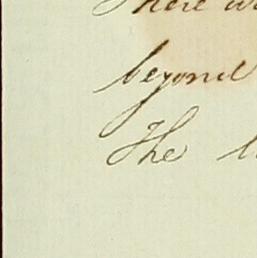 There
beyond
The